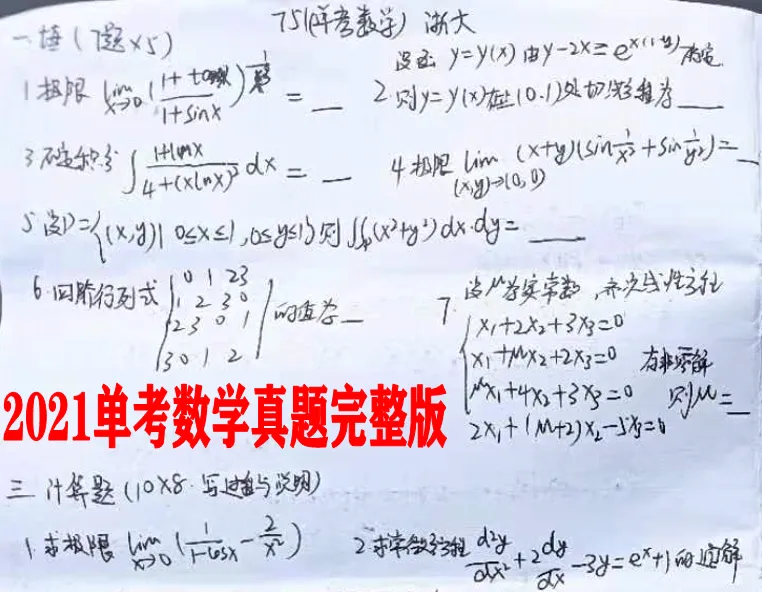 751(单考数学) 浙大
一 填 (7题×5)
1 极限 lim x→0 (1+tanx / 1+sinx) = __
设函 y=y(x) 由 y-2x=e^{x(1-y)} 确定
2. 则y=y(x)在(0,1)处切线程为 ___
3 不定积分 ∫ 1+lnx / 4+(xlnx)² dx = __
4 极限 lim (x,y)→(0,0) (x+y)(sin 1/x² + sin 1/y²) = __
5 设D={(x,y)| 0≤x≤1, 0≤y≤1} 则 ∬_D (x²+y²) dx·dy= ___
6. 四阶行列式 的值为 __
0 1 2 3
1 2 3 0
2 3 0 1
3 0 1 2
7. 设μ为实常数, 齐次线性方程
x₁+2x₂+3x₃=0
x₁+μx₂+2x₃=0 有非零解
μx₁+4x₂+3x₃=0 则μ= __
2x₁+(μ+2)x₂-5x₃=0
2021单考数学真题完整版
三 计算题 (10×8. 写过程与说明)
1. 求极限 lim x→0 (1/1-cosx - 2/x²)
2 求常微方程 d²y/dx² + 2 dy/dx - 3y = eˣ+1 的通解